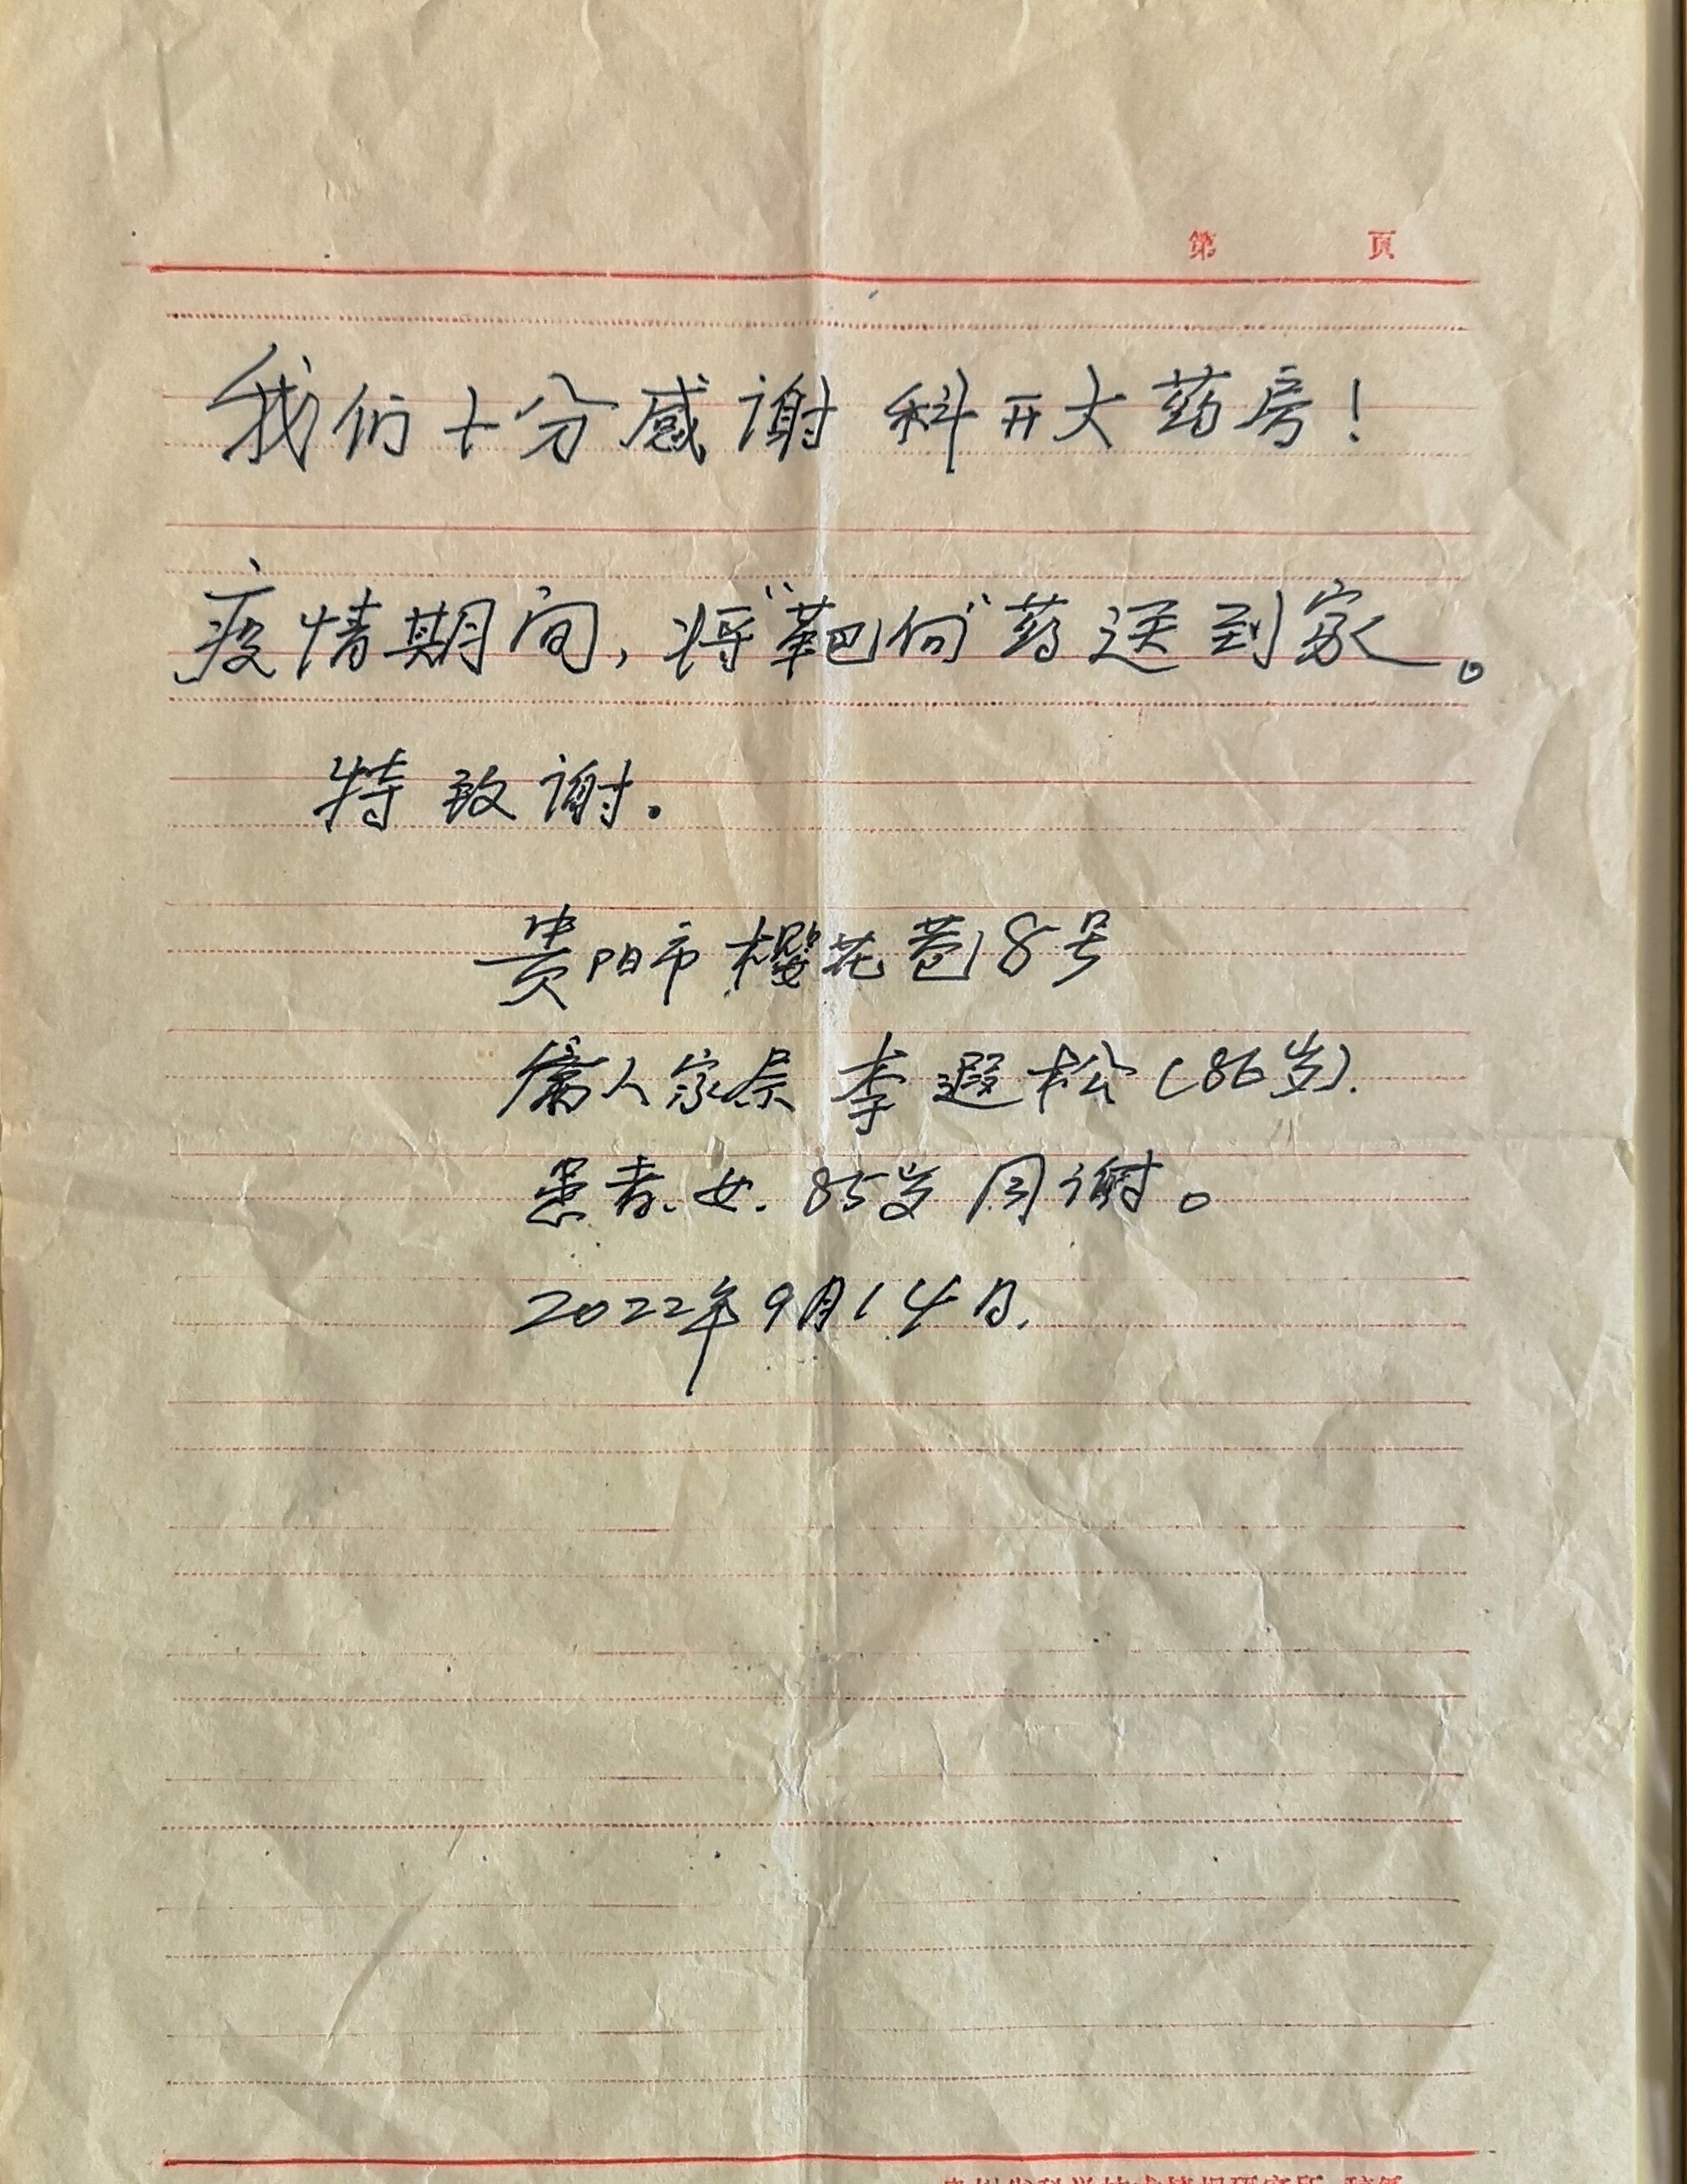 第 页
我们十分感谢 科开大药房！
疫情期间，将“靶向”药送到家。
特致谢.
贵阳市樱花巷8号
病人家属 李遐松（86岁）.
患者.女.85岁 同谢。
2022年9月14日.